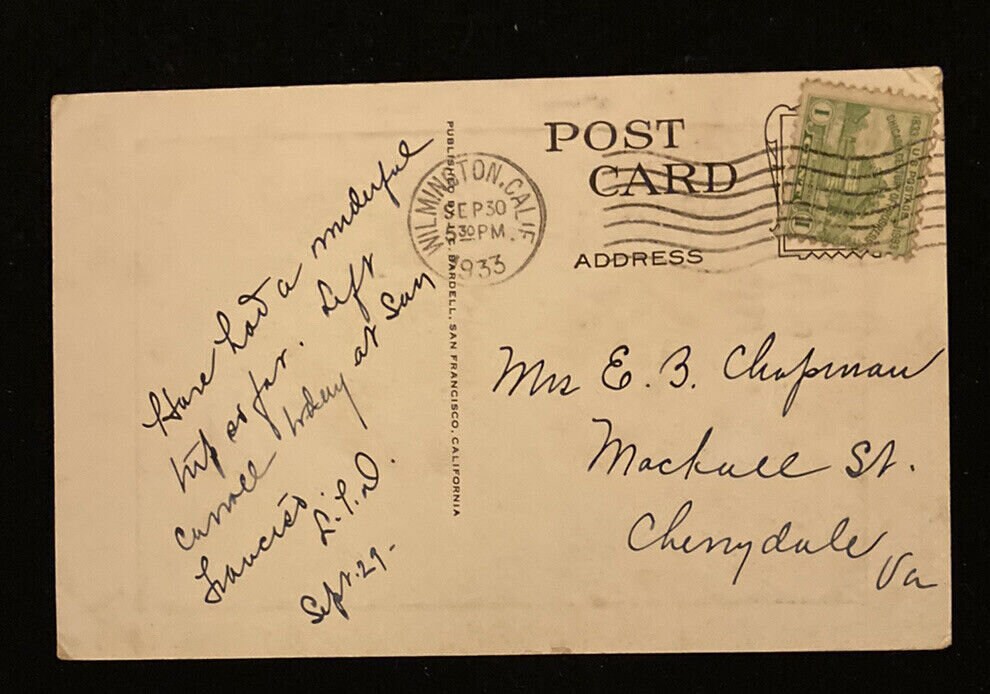 POST
CARD
ADDRESS
WILMINGTON, CALIF.
SEP 30
5 30 PM
1933
1833 U.S. POSTAGE 1933
1
PUBLISHED BY BARDELL, SAN FRANCISCO, CALIFORNIA
Have had a wonderful
trip so far. Left
Carroll today at San
Francisco.
Sept. 29-
Mrs E. B. Chapman
Mackall St.
Cherrydale
Va